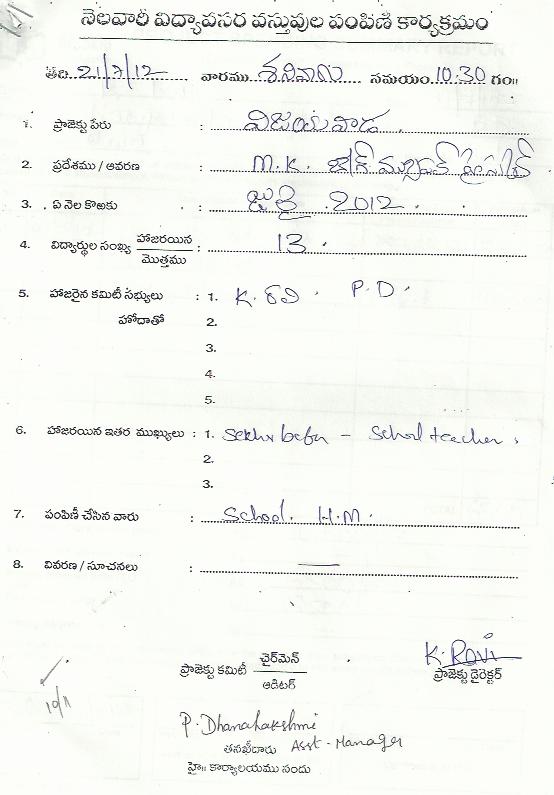 నెలవారీ విద్యావసర వస్తువుల పంపిణి కార్యక్రమం
తేది: 21/7/12 వారము శనివారం సమయం 10:30 గం॥
1. ప్రాజెక్టు పేరు : విజయవాడ.
2. ప్రదేశము / ఆవరణ : M.K.
3. ఏ నెల కొఱకు : జులై 2012.
4. విద్యార్థుల సంఖ్య హాజరయిన / మొత్తము : 13.
5. హాజరైన కమిటీ సభ్యులు : 1. K. రవి. P.D.
హోదాతో 2.
3.
4.
5.
6. హాజరయిన ఇతర ముఖ్యులు : 1. babu – School teacher.
2.
3.
7. పంపిణీ చేసిన వారు : School. H.M.
8. వివరణ / సూచనలు : —
K. Ravi
ప్రాజెక్టు కమిటీ ఛైర్‌మెన్ / ఆడిటర్ ప్రాజెక్టు డైరెక్టర్
P. Dhanalakshmi
తనిఖీదారు Asst-Manager
హై॥ కార్యాలయము నందు